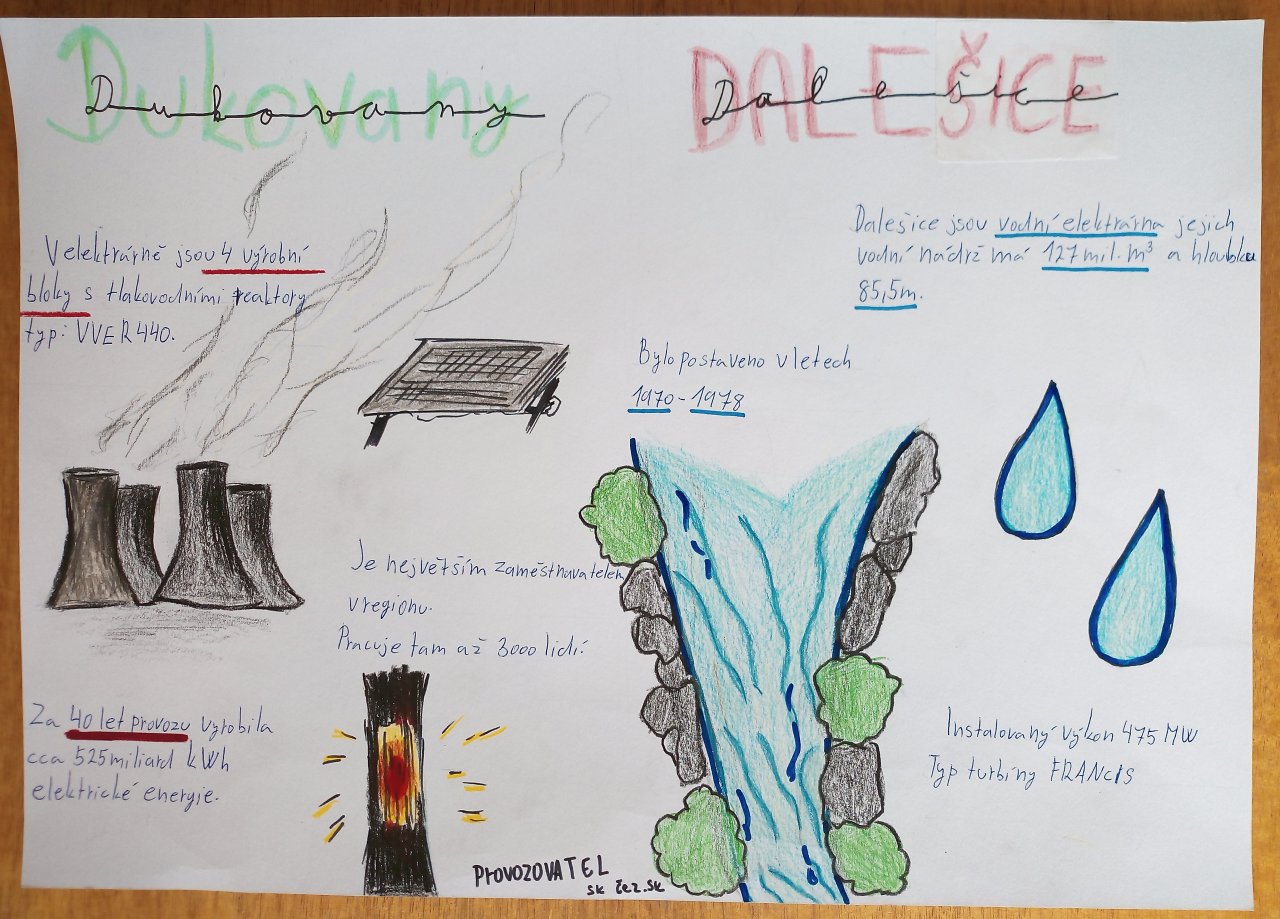 Dukovany
Dukovany
V elektrárně jsou 4 výrobní
bloky s tlakovodními reaktory
typ: VVER 440.
Je největším zaměstnavatelem
v regionu.
Pracuje tam až 3000 lidí.
Za 40 let provozu vyrobila
cca 525 miliard kWh
elektrické energie.
PROVOZOVATEL
sk čez.sk
DALEŠICE
Dalešice
Dalešice jsou vodní elektrárna jejich
vodní nádrž má 127 mil. m³ a hloubku
85,5m.
Bylo postaveno v letech
1970 - 1978
Instalovaný výkon 475 MW
Typ turbíny FRANCIS